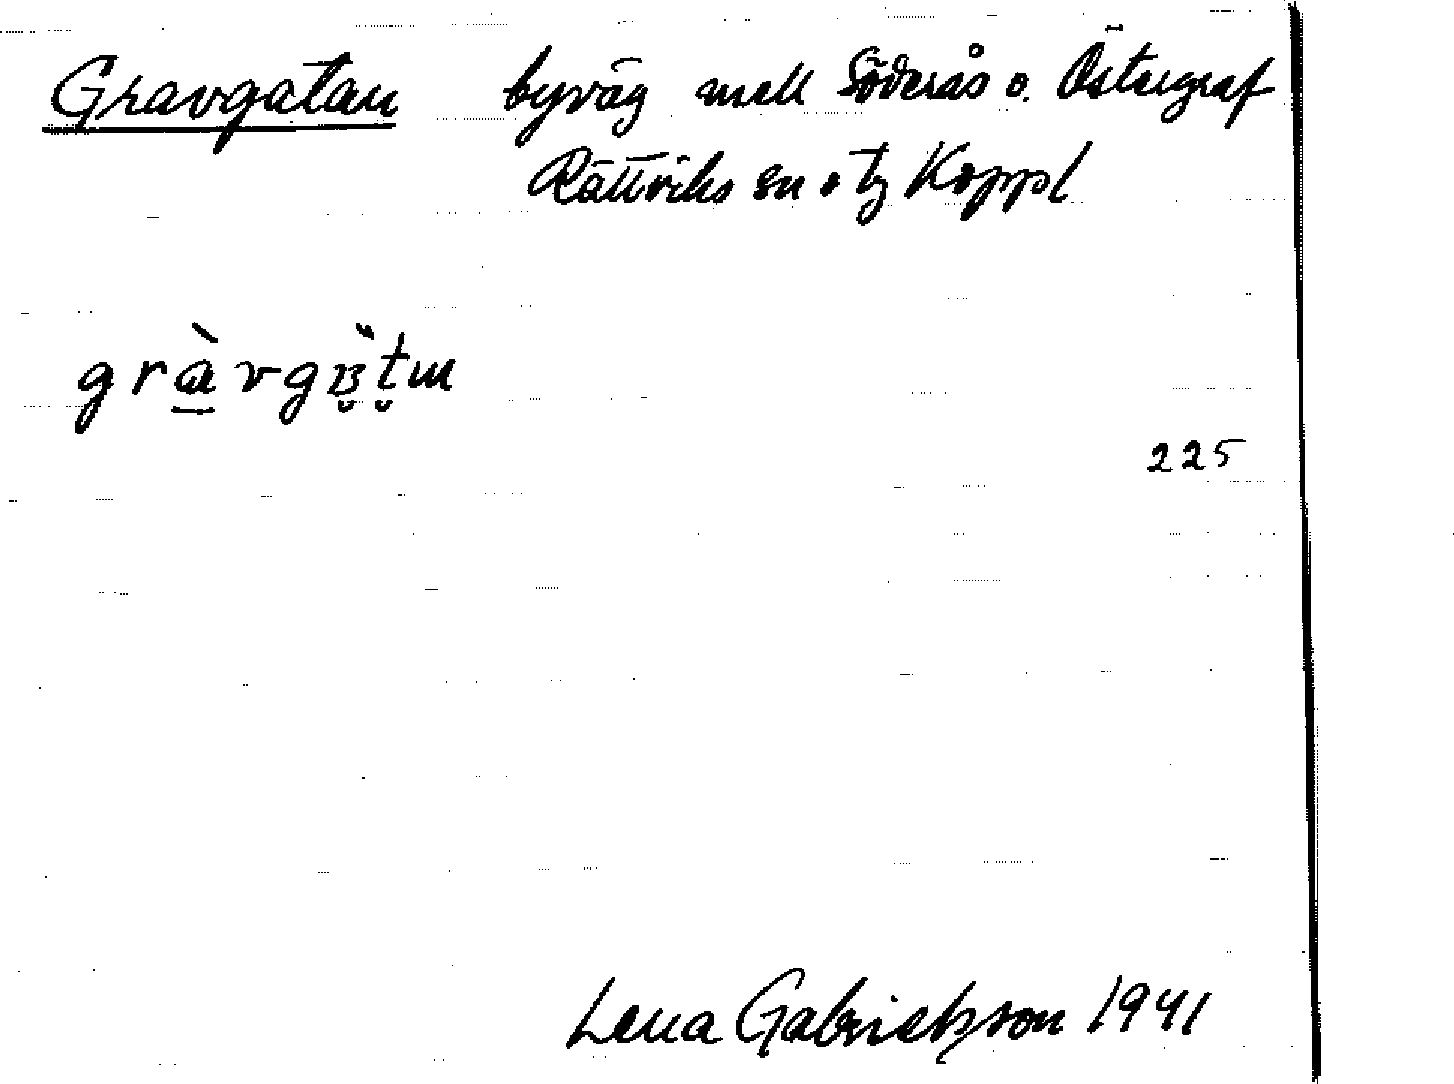 Gravgatan byväg mell Söderås o. Östergraf
Rättviks sn o tg Koppl
225
Lena Gabrielsson 1941